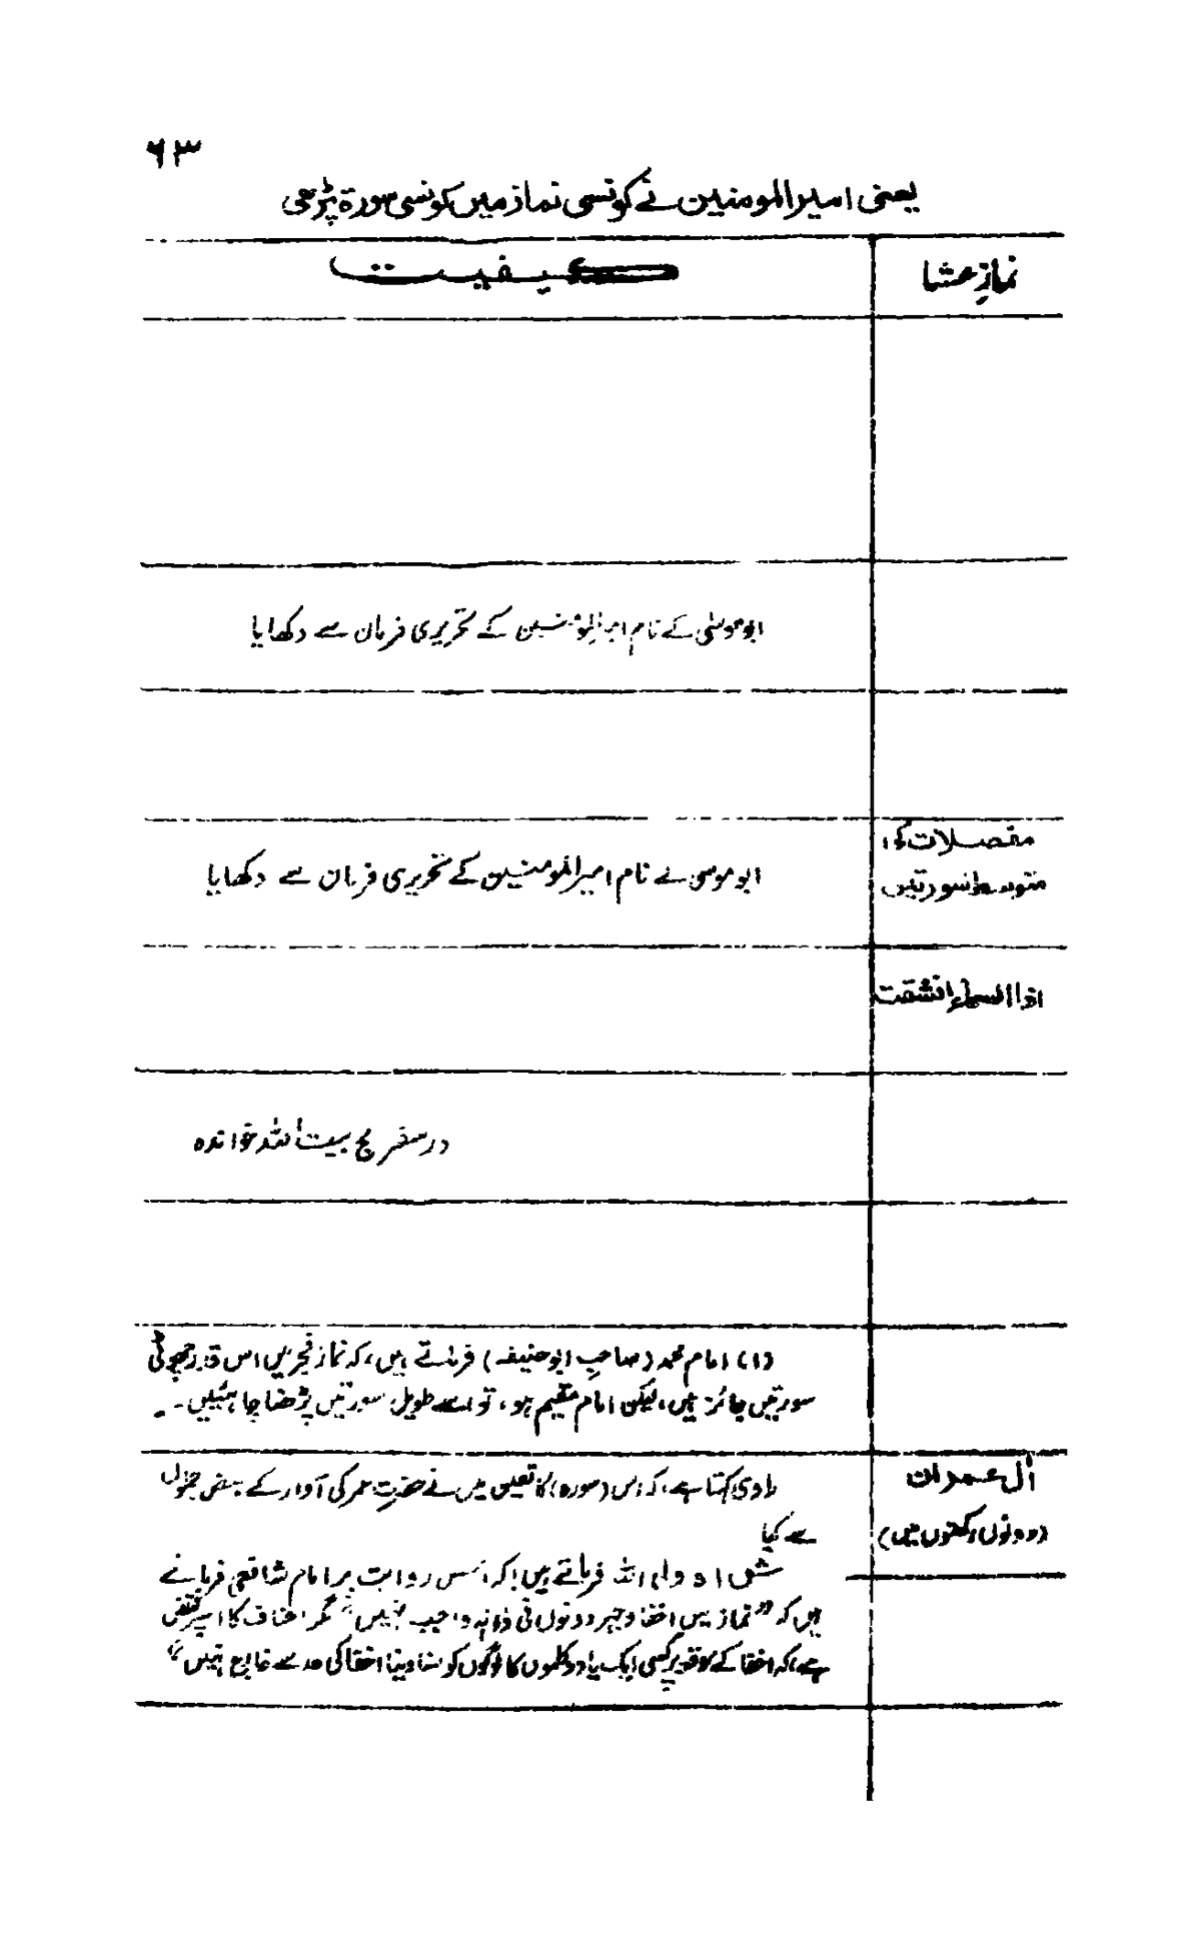 ۶۳
یعنی امیرالمومنین نے کونسی نماز میں کونسی سورۃ پڑھی
نمازِ عشا
کیفیت
ابو موسٰی کے نام امیرالمؤمنین کے تحریری فرمان سے دکھایا
مفصلات کی
متوسط سورتیں
ابو موسٰی کے نام امیرالمومنین کے تحریری فرمان سے دکھایا
اذا السماء انشقت
در سفر حج بیت اللہ خواندہ
(۱) امام محمد (صاحبِ ابو حنیفہ) فرماتے ہیں، کہ نماز فجر میں اس قدر چھوٹی
سورتیں جائز ہیں، لیکن امام مقیم ہو، تو اسے طویل سورتیں پڑھنا چاہئیں۔
آل عمران
(دونوں رکعتوں میں)
راوی کہتا ہے، کہ اس (سورہ) کا تعین میں نے حضرت عمر کی آواز کے بعض جملوں
سے کیا
شاہ ولی اللہ فرماتے ہیں کہ اس روایت پر امام شافعی فرماتے
ہیں کہ "نماز میں اخفا و جہر دونوں فی ذاتہٖ واجب نہیں" مگر احناف کا اسپر
ہے، کہ اخفا کے موقعہ پر کسی ایک یا دو کلموں کا لوگوں کو سنا دینا اخفا کی حد سے خارج نہیں"